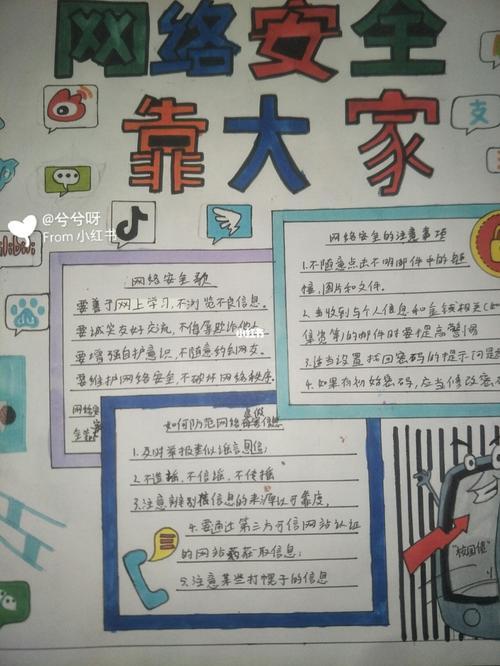 网络安全
靠大家
@兮兮呀
From 小红书
网络安全的注意事项
1.不随意点击不明邮件中的链
接、图片和文件。
2.当收到与个人信息和金钱相关(如
集资等)的邮件时要提高警惕
3.适当设置找回密码的提示问题
4.如果有初始密码,应当修改密
网络安全歌
要善于网上学习,不浏览不良信息.
要诚实友好交流,不侮辱欺诈他人
要增强自护意识,不随意约会网友.
要维护网络安全,不破坏网络秩序.
网络安
如何防范网络虚假信息
1.及时举报类似谣言信息;
2.不造谣,不信谣,不传谣
3.注意辨别信息的来源和可靠度,
4.要通过第三方可信网站认证
的网站获取信息;
5.注意某些打幌子的信息
校园借
支
du